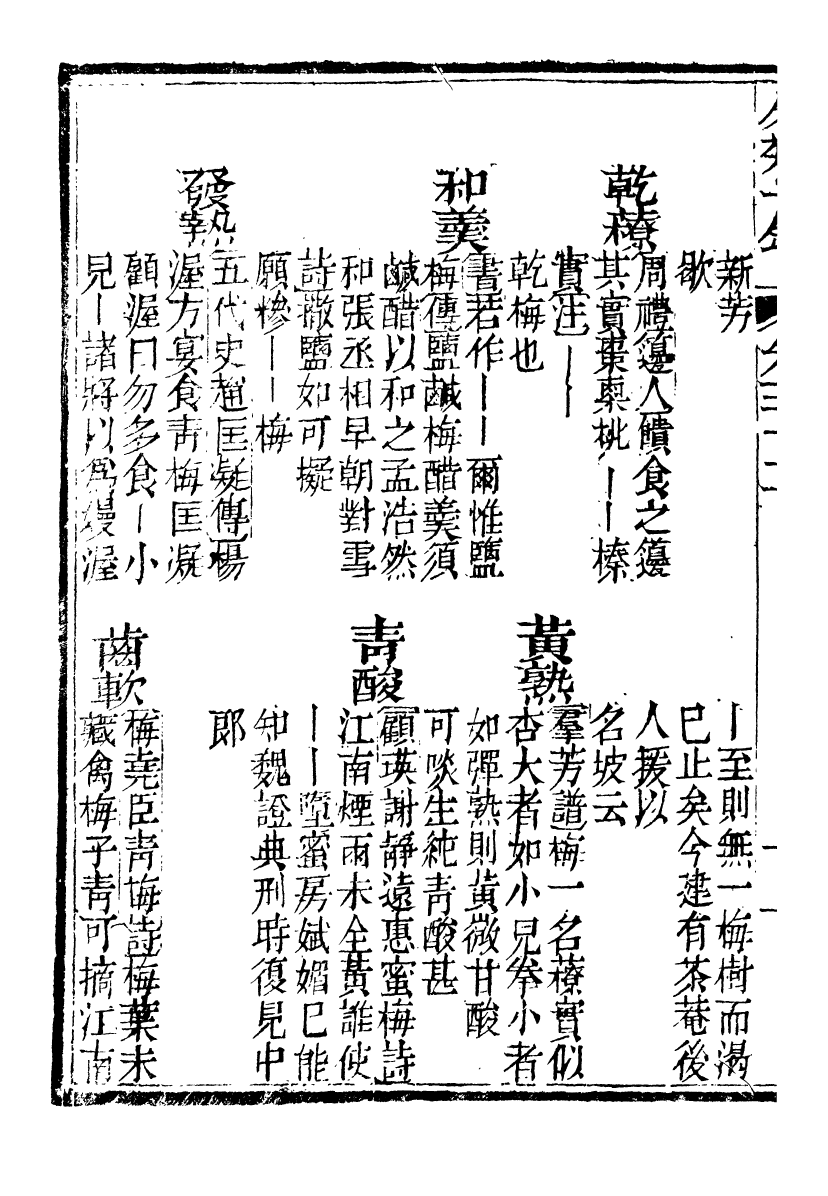 新芳
歇
乾䕩
周禮籩人饋食之籩
其實棗㮚桃丨丨榛
實注丨丨
乾梅也
和羹
書若作丨丨爾惟鹽
梅傳鹽鹹梅醋羹須
鹹醋以和之孟浩然
和張丞相早朝對雪
詩撒鹽如可擬
願糝丨丨梅
發熱
五代史趙匡凝傳楊
渥方宴食青梅匡凝
顧渥曰勿多食丨小
兒丨諸將以爲嫚渥
丨至則無一梅樹而渴
已止矣今建有茶菴後
人援以
名坡云
黃熟
羣芳譜梅一名䕩實似
杏大者如小兒拳小者
如彈熟則黃微甘酸
可啖生純青酸甚
青酸
顧瑛謝靜遠惠蜜梅詩
江南煙雨未全黃誰使
丨丨墮蜜房娬媚已能
知魏證典刑時復見中
郎
齒軟
梅堯臣青梅詩梅葉未
藏禽梅子青可摘江南